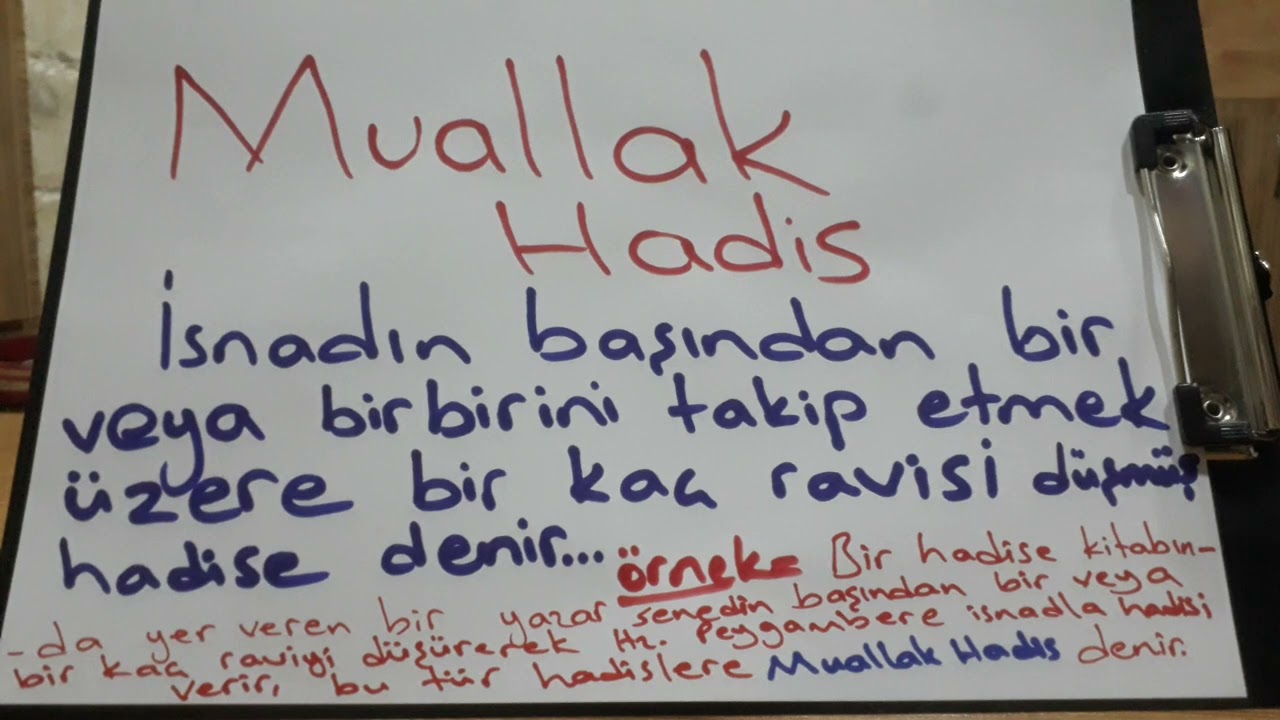 Muallak
Hadis
İsnadın başından bir
veya birbirini takip etmek
üzere bir kaç ravisi düşmüş
hadise denir... örnek: Bir hadise kitabın-
-da yer veren bir yazar senedin başından bir veya
bir kaç raviyi düşürerek Hz. Peygambere isnadla hadisi
verir, bu tür hadislere Muallak Hadis denir.